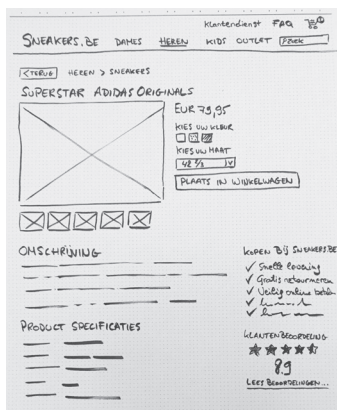 Klantendienst FAQ
SNEAKERS.BE DAMES HEREN KIDS OUTLET Zoek
< TERUG HEREN > SNEAKERS
SUPERSTAR ADIDAS ORIGINALS
EUR 79,95
KIES UW KLEUR
KIES UW MAAT
42 2/3
PLAATS IN WINKELWAGEN
OMSCHRIJVING
KOPEN Bij SNEAKERS.BE
✓ Snelle levering
✓ Gratis retourneren
✓ Veilig online
PRODUCT SPECIFICATIES
KLANTENBEOORDELING
8.9
LEES BEOORDELINGEN...